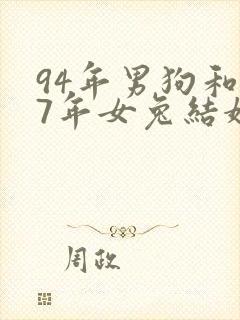 94年男狗和
7年女兔結如
周政